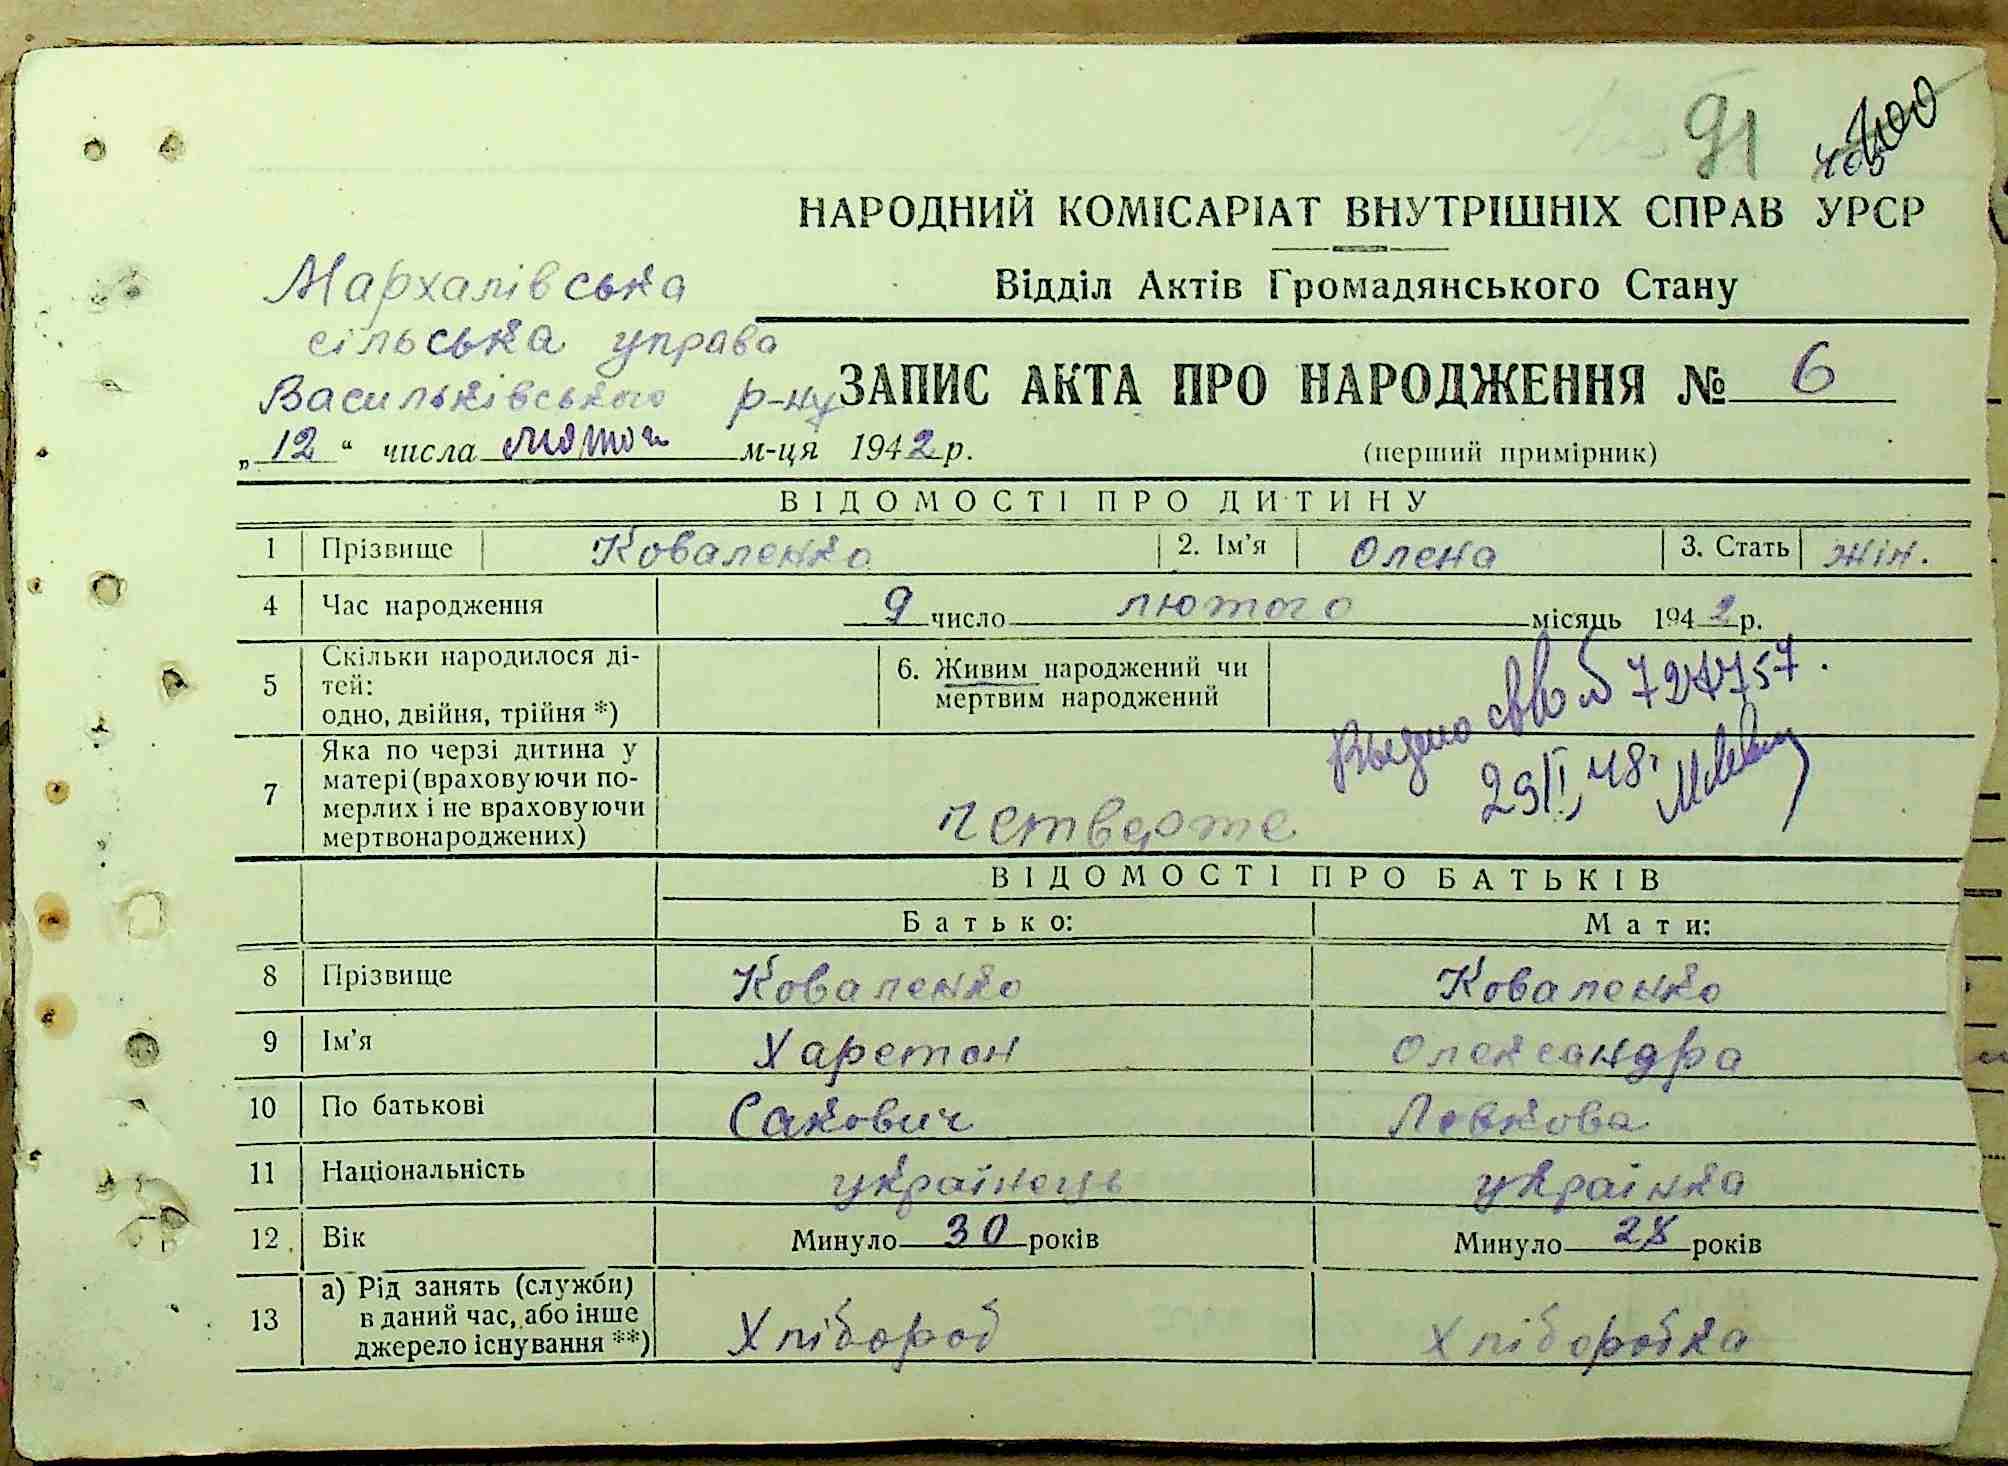 91 100
НАРОДНИЙ КОМІСАРІАТ ВНУТРІШНІХ СПРАВ УРСР
Відділ Актів Громадянського Стану
Мархалівська
сільська управа
Васильківського р-ну
ЗАПИС АКТА ПРО НАРОДЖЕННЯ № 6
„12“ числа лютого м-ця 1942 р.
(перший примірник)
ВІДОМОСТІ ПРО ДИТИНУ
1 Прізвище Коваленко 2. Ім'я Олена 3. Стать жін.
4 Час народження 9 число лютого місяць 1942 р.
5 Скільки народилося ді-
тей:
одно, двійня, трійня *)
6. Живим народжений чи
мертвим народжений
727757.
29/I, 48.
7 Яка по черзі дитина у
матері (враховуючи по-
мерлих і не враховуючи
мертвонароджених)
четверте
ВІДОМОСТІ ПРО БАТЬКІВ
Батько: Мати:
8 Прізвище Коваленко Коваленко
9 Ім'я Харетон Олександра
10 По батькові Сакович Левкова
11 Національність українець українка
12 Вік Минуло 30 років Минуло 28 років
13 а) Рід занять (служби)
в даний час, або інше
джерело існування **)
Хлібороб Хліборобка